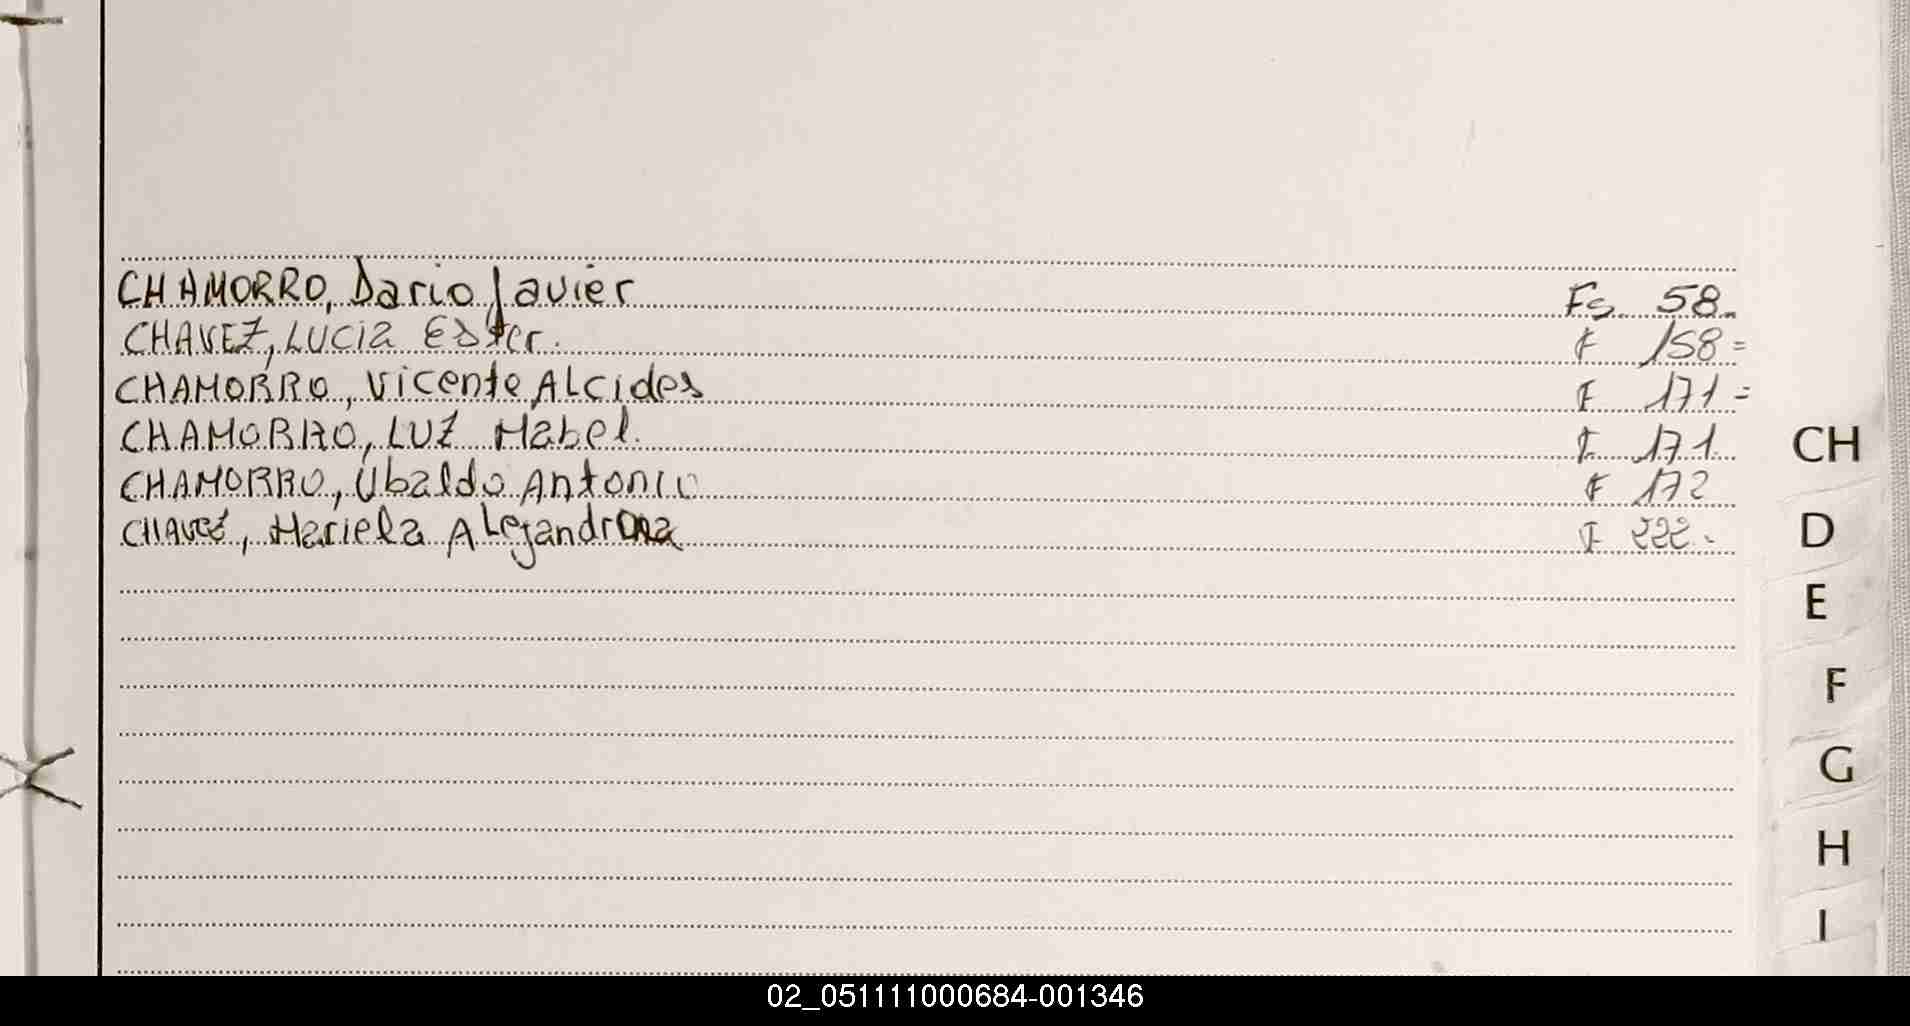 CHAMORRO, Dario Javier Fs. 58.
CHAVEZ, Lucia Ester. F 158=
CHAMORRO, Vicente Alcides F 171=
CHAMORRO, Luz Mabel. F 171.
CHAMORRO, Ubaldo Antonio F 172
CHAVEZ, Mariela F 222.-
CH
D
E
F
G
H
I
02_051111000684-001346